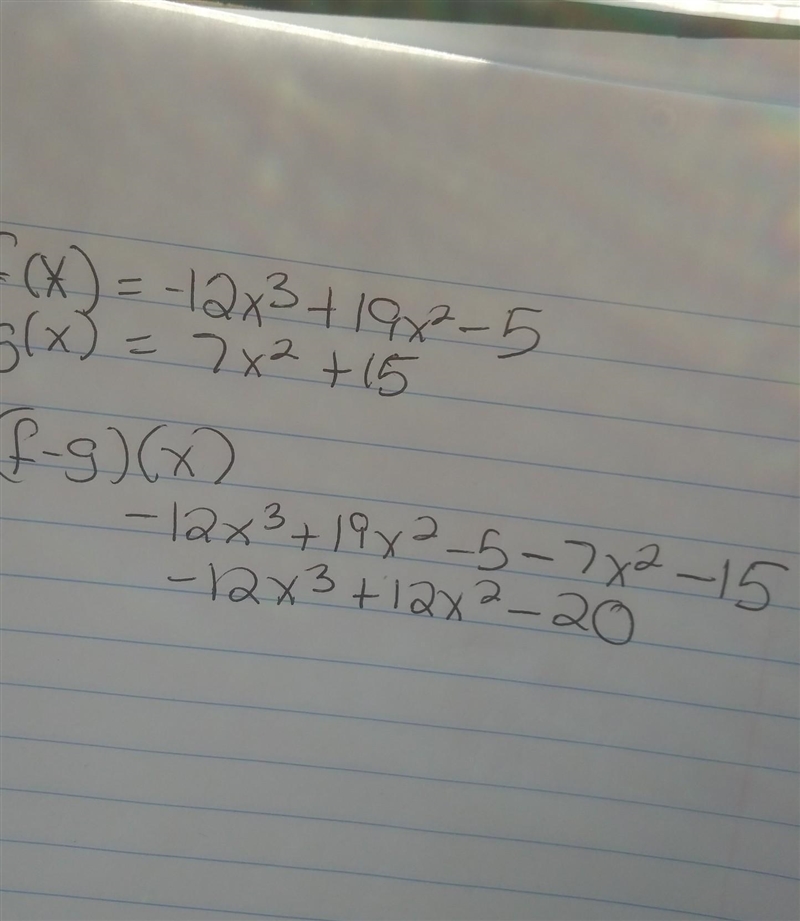 f(x) = -12x³ + 19x² - 5
g(x) = 7x² + 15
(f-g)(x)
-12x³ + 19x² - 5 - 7x² - 15
-12x³ + 12x² - 20